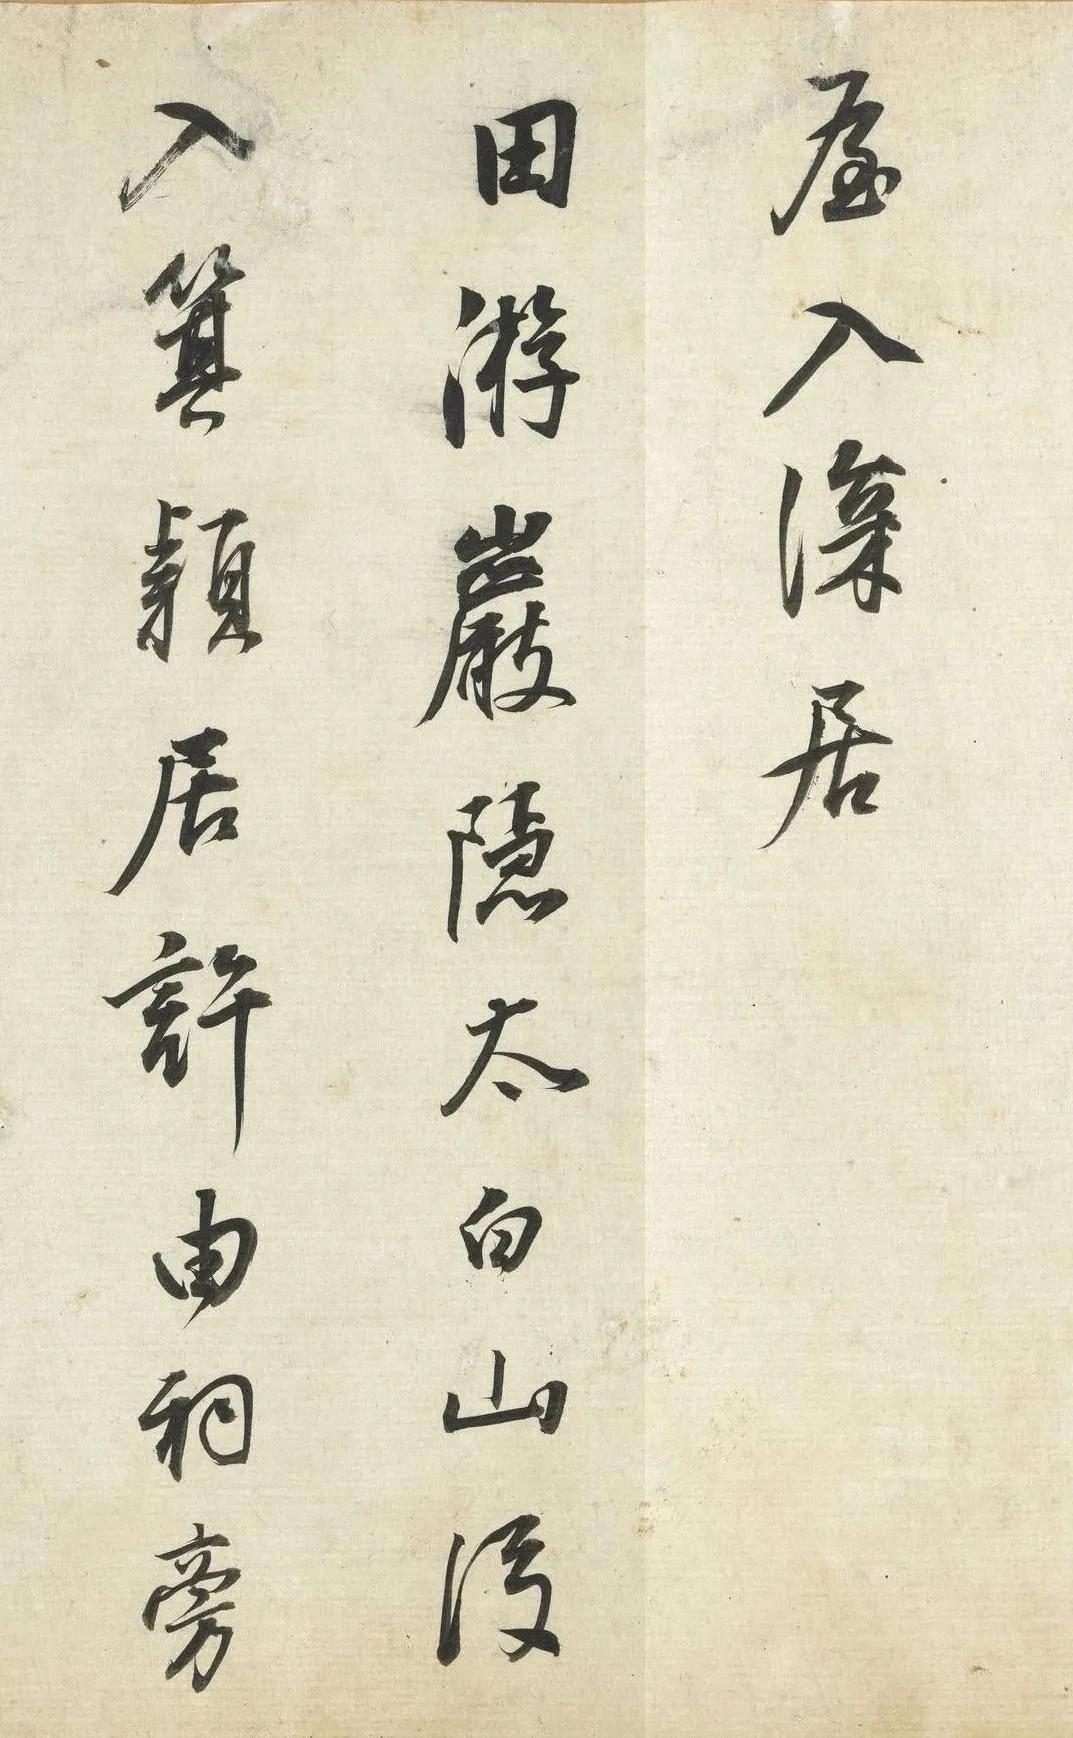 屋入深居
田游巖隱太白山後
入箕潁居許由祠旁